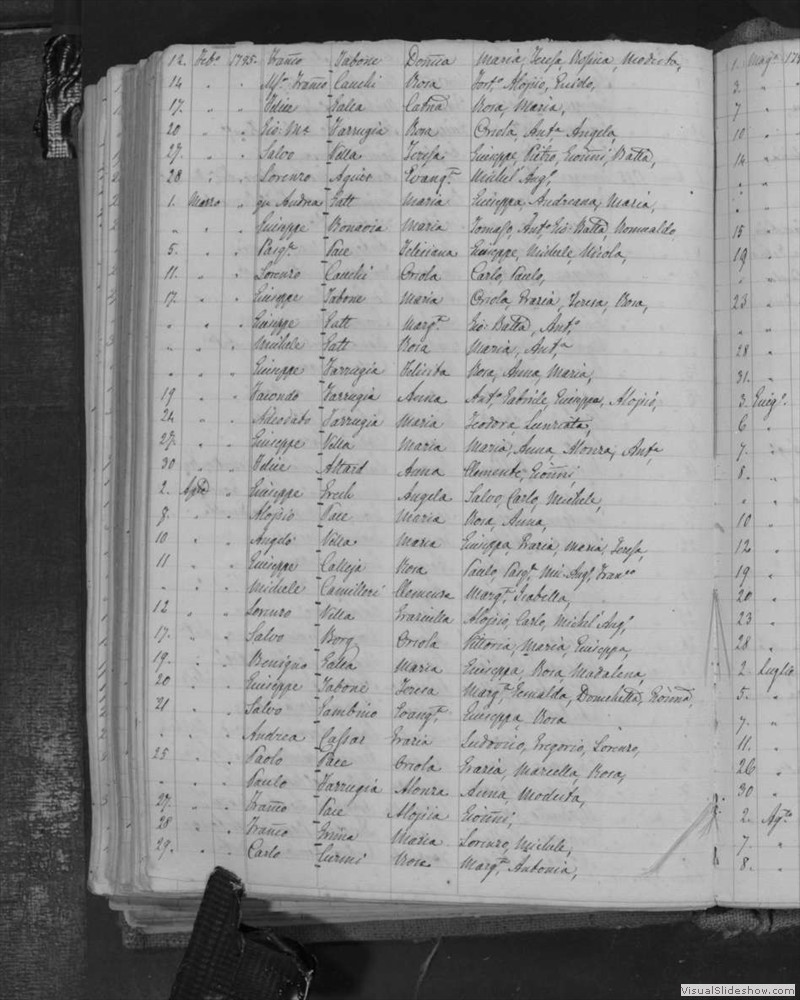 12. Feb.o 1795. Franco Tabone Maria, Teresa Rosina, Modesta,
14 " " Franco Cauchi Rosa Alojsio, Guido,
17. " " Felice Galea Rosa, Maria,
20 " " Gio: Ma Farrugia Rosa Oriola, Anta Angela,
27. " " Salvo Vella Teresa Giuseppe, Pietro, Gioñi, Batta,
28 " " Lorenzo Agius Evangta Michel' Ang.o,
1. Marzo " qu Andrea Gatt Maria Giuseppa, Andreana, Maria,
" " " Giuseppe Bonavia Maria Tomaso, Anto Gio: Batta, Romualdo
5. " " Pasqe Pace Felisiana Giuseppe, Michele, Nicola,
11. " " Lorenzo Cauchi Oriola Carlo, Paulo,
17. " " Giuseppe Tabone Maria Oriola, Grazia, Teresa, Rosa,
" " " Giuseppe Gatt Margta Gio: Batta, Anto
" " " Michele Gatt Rosa Maria, Anta
" " " Giuseppe Farrugia Felicita Rosa, Anna, Maria,
19 " " Facondo Farrugia Anna Anto Gabriele, Giuseppa, Alojsio,
24 " " Adeodato Farrugia Maria Teodora
27. " " Giuseppe Vella Maria Maria, Anna, Alonza, Anta
30 " " Felice Attard Anna Clemente, Gioñi,
2. Aple " Giuseppe Grech Angela Salvo, Carlo, Michele,
8. " " Alojsio Pace Maria Rosa, Anna,
10 " " Angelo Vella Maria Giuseppa, Grazia, Maria, Teresa,
11 " " Giuseppe Calleja Rosa Paulo, Pasqe Mic. Ango, Franco
" " " Michele Camilleri Clemenza Margta Isabella,
12 " " Lorenzo Vella Graziulla Alojsio, Carlo, Michel' Ango,
17. " " Salvo Borg Oriola Vittoria, Maria, Giuseppa,
19. " " Benigno Galea Maria Giuseppa, Rosa, Madalena,
20 " " Giuseppe Tabone Teresa Margta
21 " " Salvo Gambino Evangta Giuseppa Rosa
" " " Andrea Cassar Grazia Ludovico, Gregorio, Lorenzo,
25 " " Paolo Pace Oriola Grazia, Marcella, Rosa,
" " " Paulo Farrugia Alonza Anna, Modesta,
27. " " Franco Pace Alojsia Gioñi,
28 " " Franco Maria Lorenzo, Michele,
29. " " Carlo Curmi Rosa Margta Antonia,
1. Mago 179
3. "
7 "
10 "
14 "
" "
" "
15 "
19 "
" "
23 "
" "
28 "
31. "
3. Giugo
6 "
7. "
8. "
" "
10 "
12 "
19 "
20 "
23 "
28 "
2 Luglio
5. "
7. "
11. "
26 "
30 "
2. Ago
7. "
8. "
VisualSlideshow.com